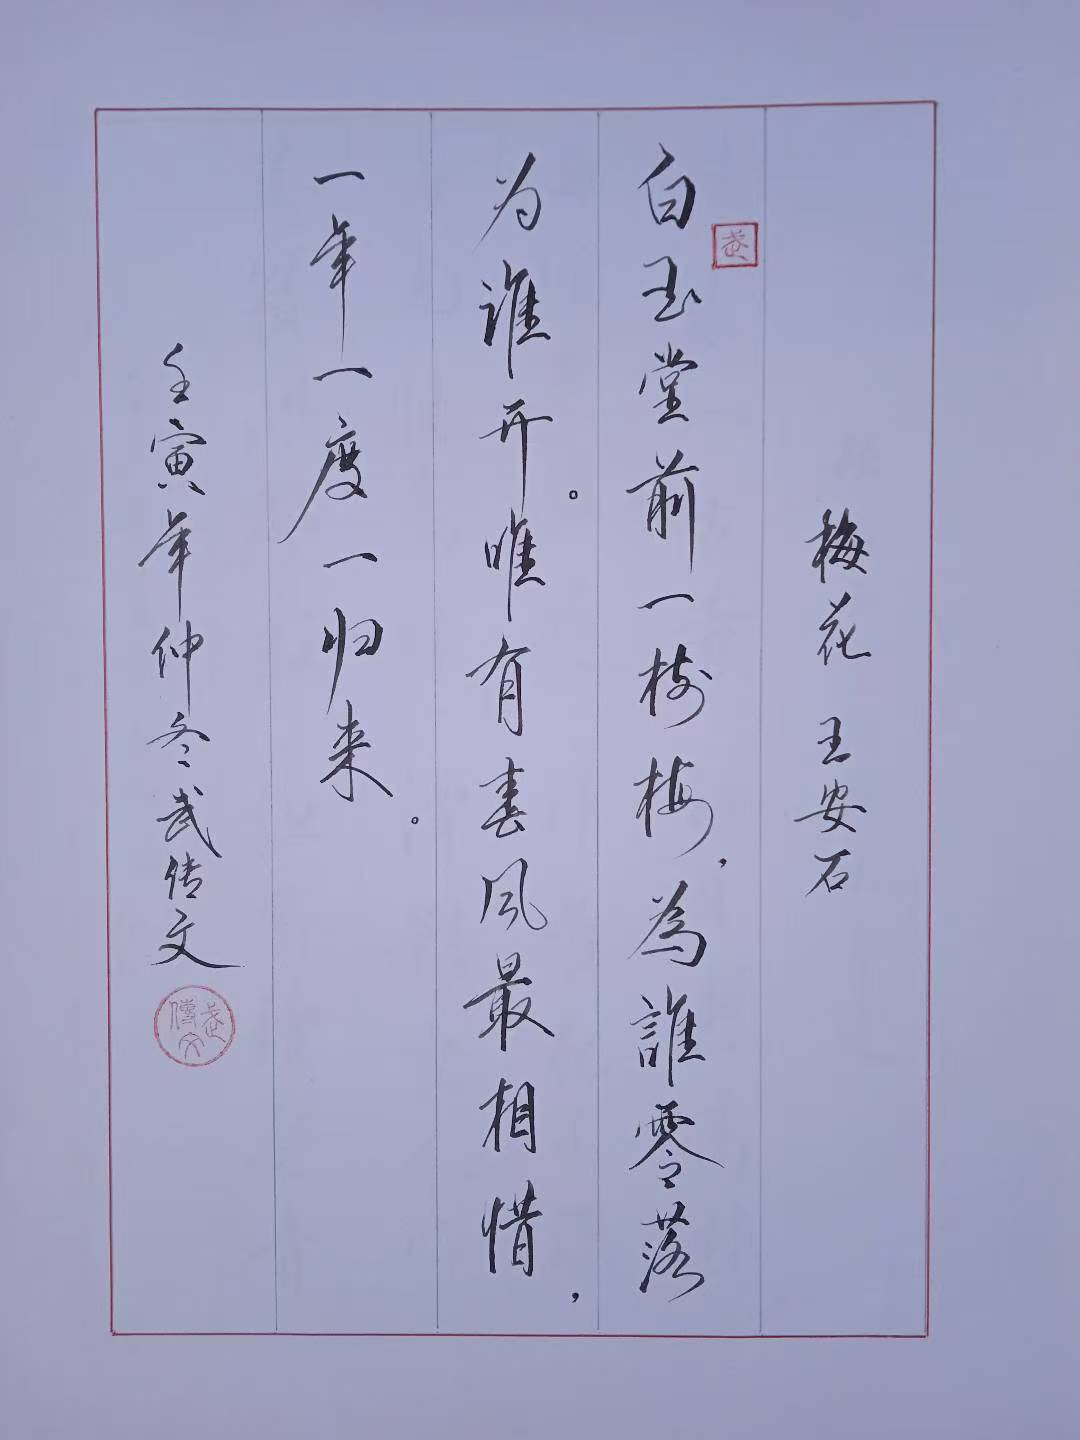 梅花 王安石
白玉堂前一树梅，為誰零落
为谁开。唯有春风最相惜，
一年一度一归来。
壬寅年仲冬武传文
武
武傳文